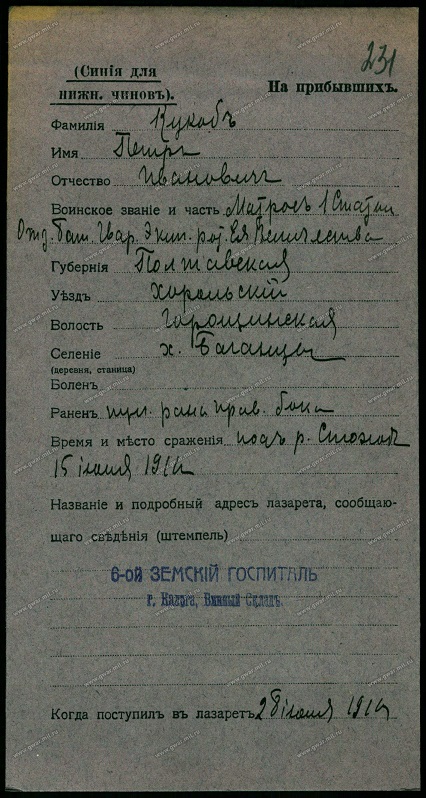 231
(Синія для
нижн. чиновъ).
На прибывшихъ.
Фамилія Кукобъ
Имя Петръ
Отчество Ивановичъ
Воинское званіе и часть Матросъ 1 Статьи
Отд. Бат. Гвар. Экип. рот. Ея Величества
Губернія Полтавская
Уѣздъ Хорольскій
Волость Горошинская
Селеніе х. Баганцы
(деревня, станица)
Боленъ
Раненъ пул. рана прав. бока
Время и мѣсто сраженія подъ р. Стоходъ
15 іюля 1916
Названіе и подробный адресъ лазарета, сообщаю-
щаго свѣдѣнія (штемпель)
6-ой ЗЕМСКІЙ ГОСПИТАЛЬ
г. Калуга, Винный Складъ.
Когда поступил въ лазаретъ 28 іюля 1916